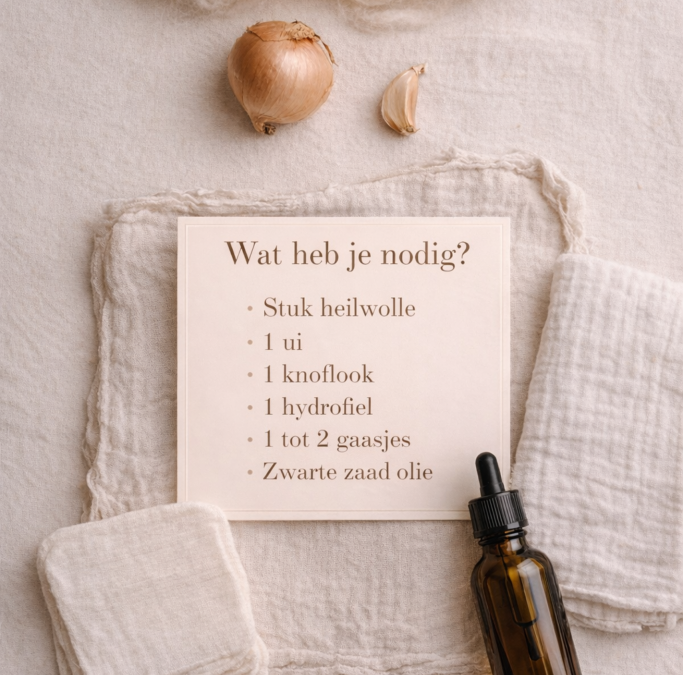 Wat heb je nodig?
• Stuk heilwolle
• 1 ui
• 1 knoflook
• 1 hydrofiel
• 1 tot 2 gaasjes
• Zwarte zaad olie